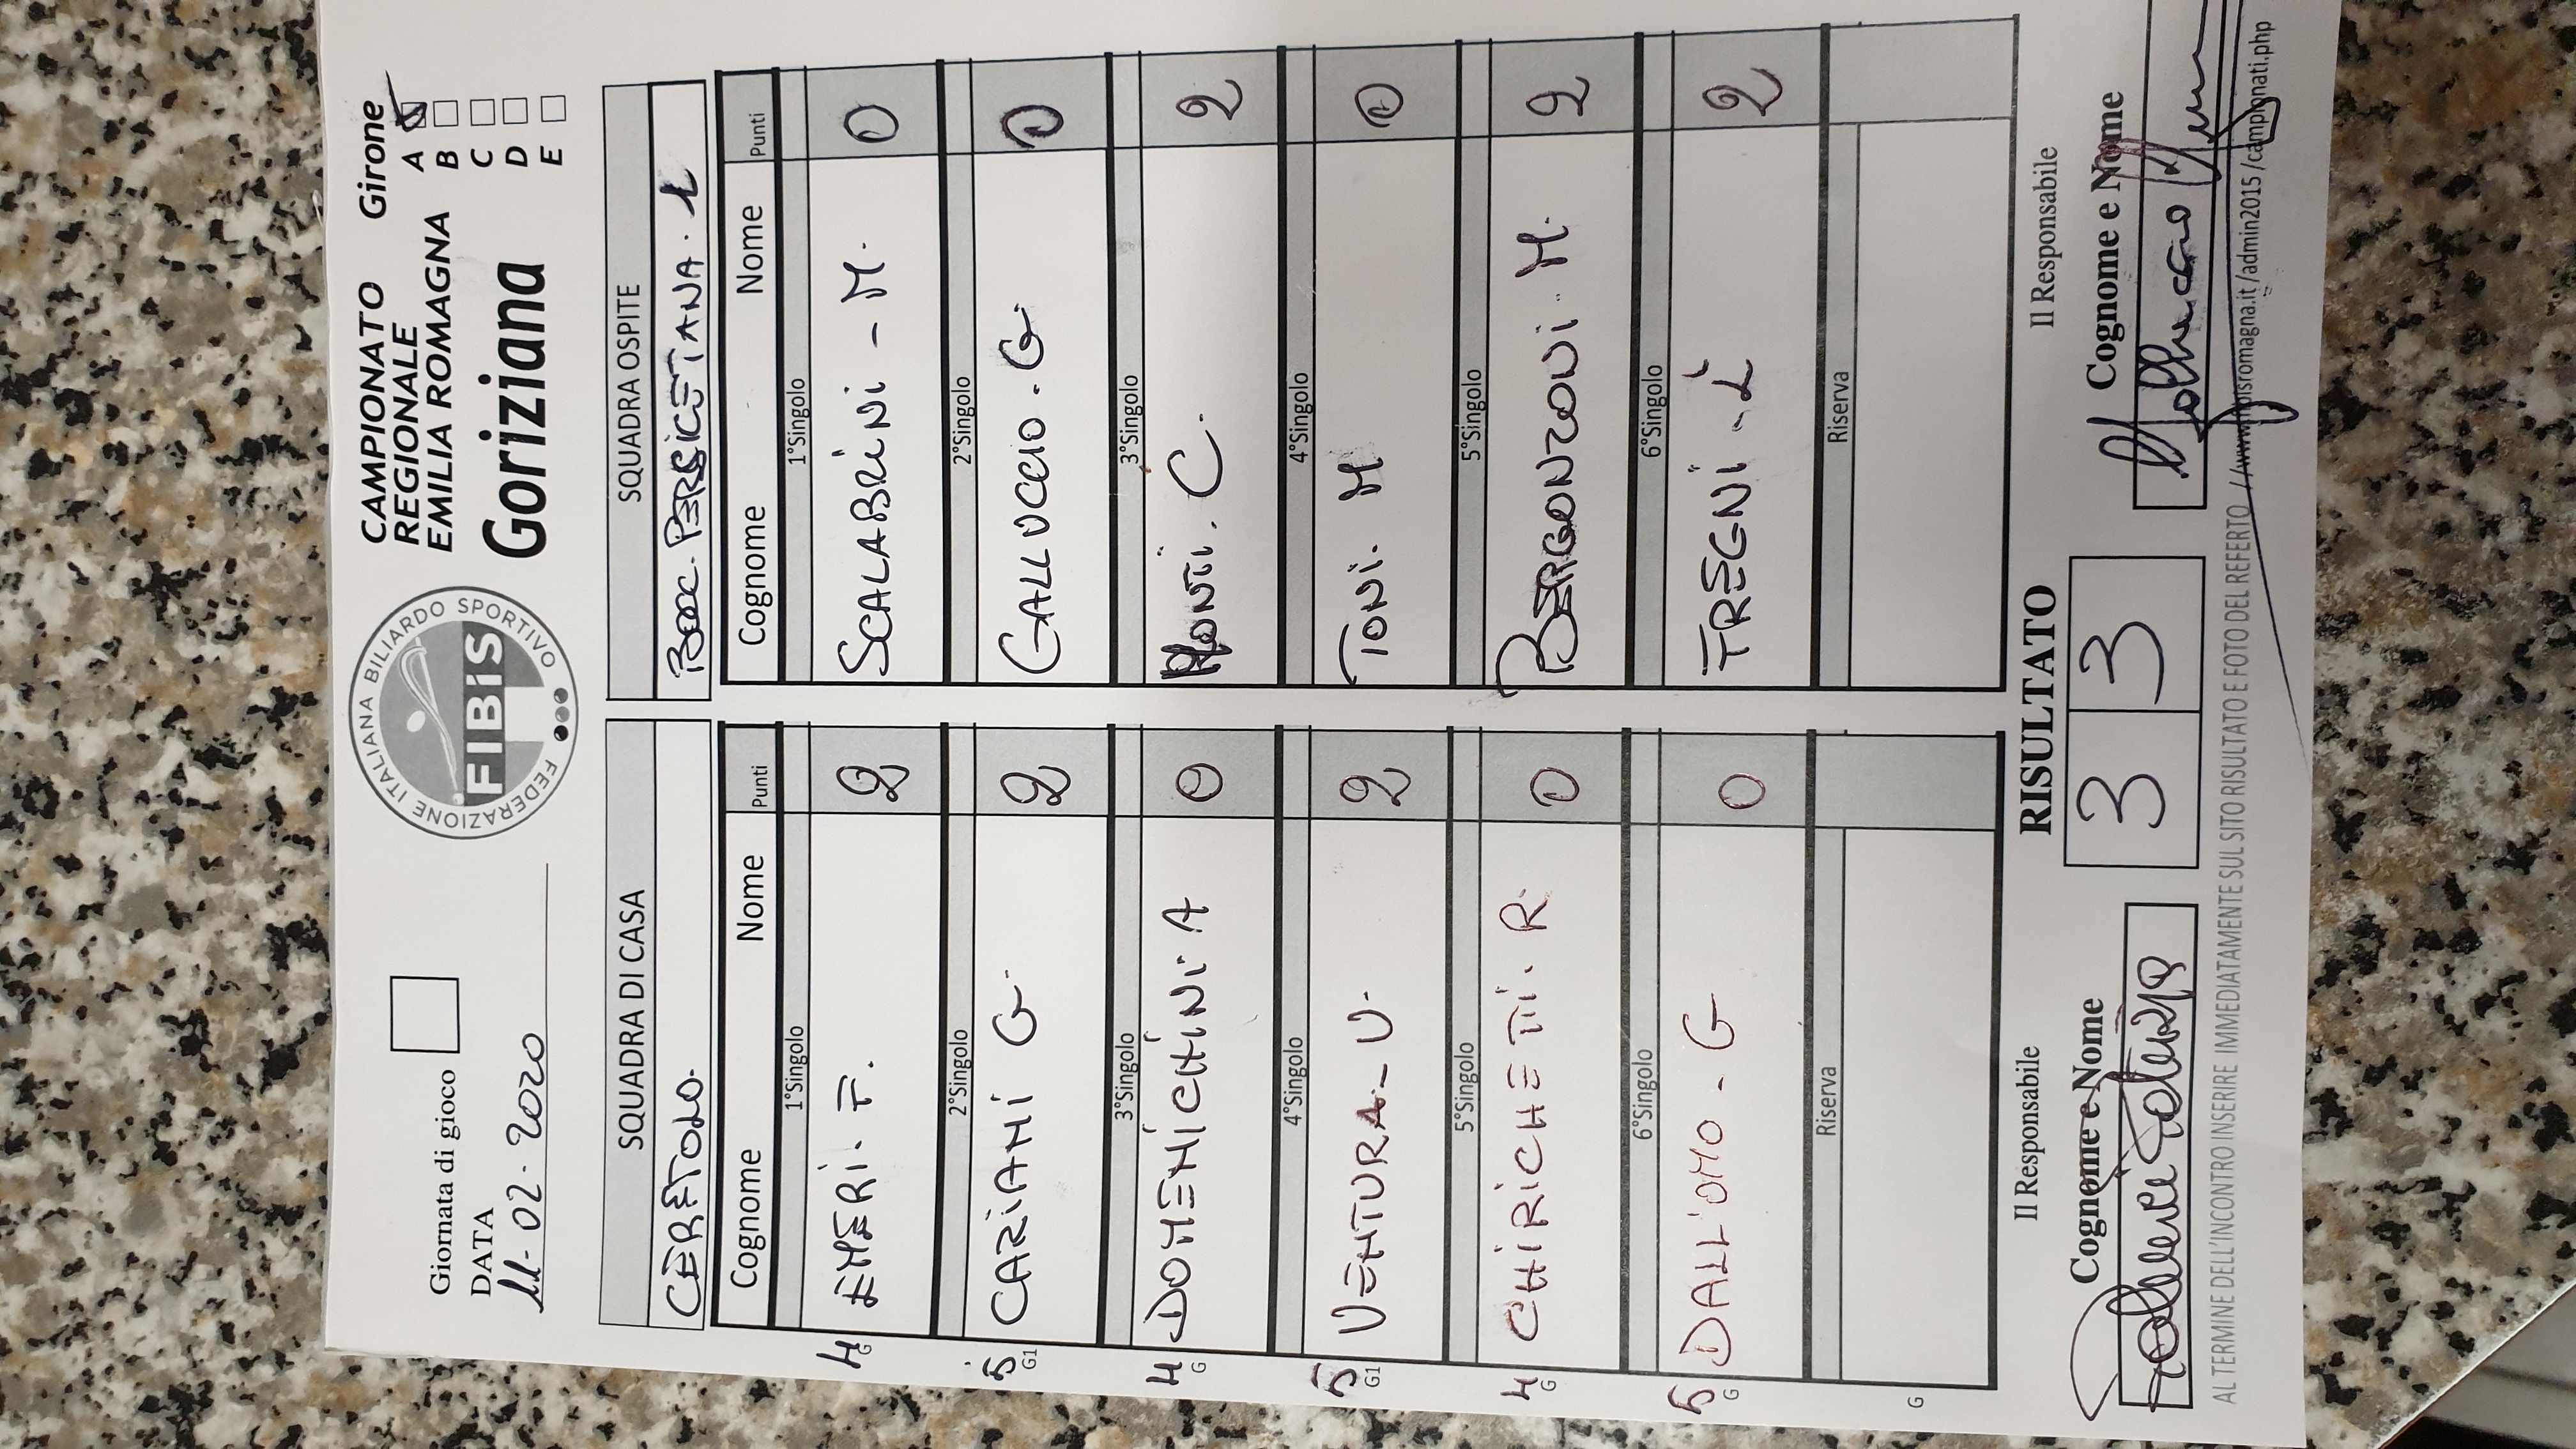 Giornata di gioco
DATA
11-02-2020
FEDERAZIONE ITALIANA BILIARDO SPORTIVO
FIBiS
CAMPIONATO
REGIONALE
EMILIA ROMAGNA
Goriziana
Girone
A
B
C
D
E
SQUADRA DI CASA SQUADRA OSPITE
CERETOLO. BOCC. PERSICETANA. 1
Cognome Nome Punti Cognome Nome Punti
1°Singolo 1°Singolo
4 G EMERI. F. 2 SCALABRINI - M. 0
2°Singolo 2°Singolo
5 G1 CARIANI G. 2 GALLUCCIO. G. 0
3°Singolo 3°Singolo
4 G DOMENICHINI A 0 MONTI. C. 2
4°Singolo 4°Singolo
5 G1 VENTURA - V. 2 TONI. M 0
5°Singolo 5°Singolo
4 G CHIRICHETTI. R. 0 BERGONZONI. M. 2
6°Singolo 6°Singolo
5 G DALL'OMO - G 0 TREGNI - L 2
Riserva Riserva
G
Il Responsabile RISULTATO Il Responsabile
Cognome e Nome 3 3 Cognome e Nome
AL TERMINE DELL'INCONTRO INSERIRE IMMEDIATAMENTE SUL SITO RISULTATO E FOTO DEL REFERTO //www.fibisromagna.it/admin2015/campionati.php